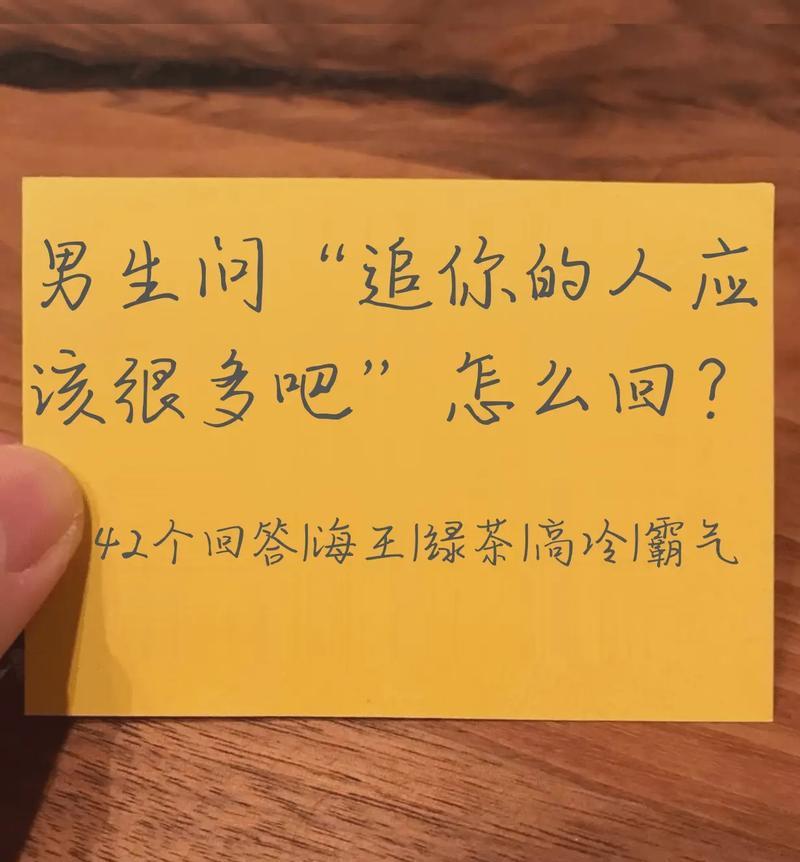 男生问“追你的人应
该很多吧”怎么回？
42个回答|海王|绿茶|高冷|霸气